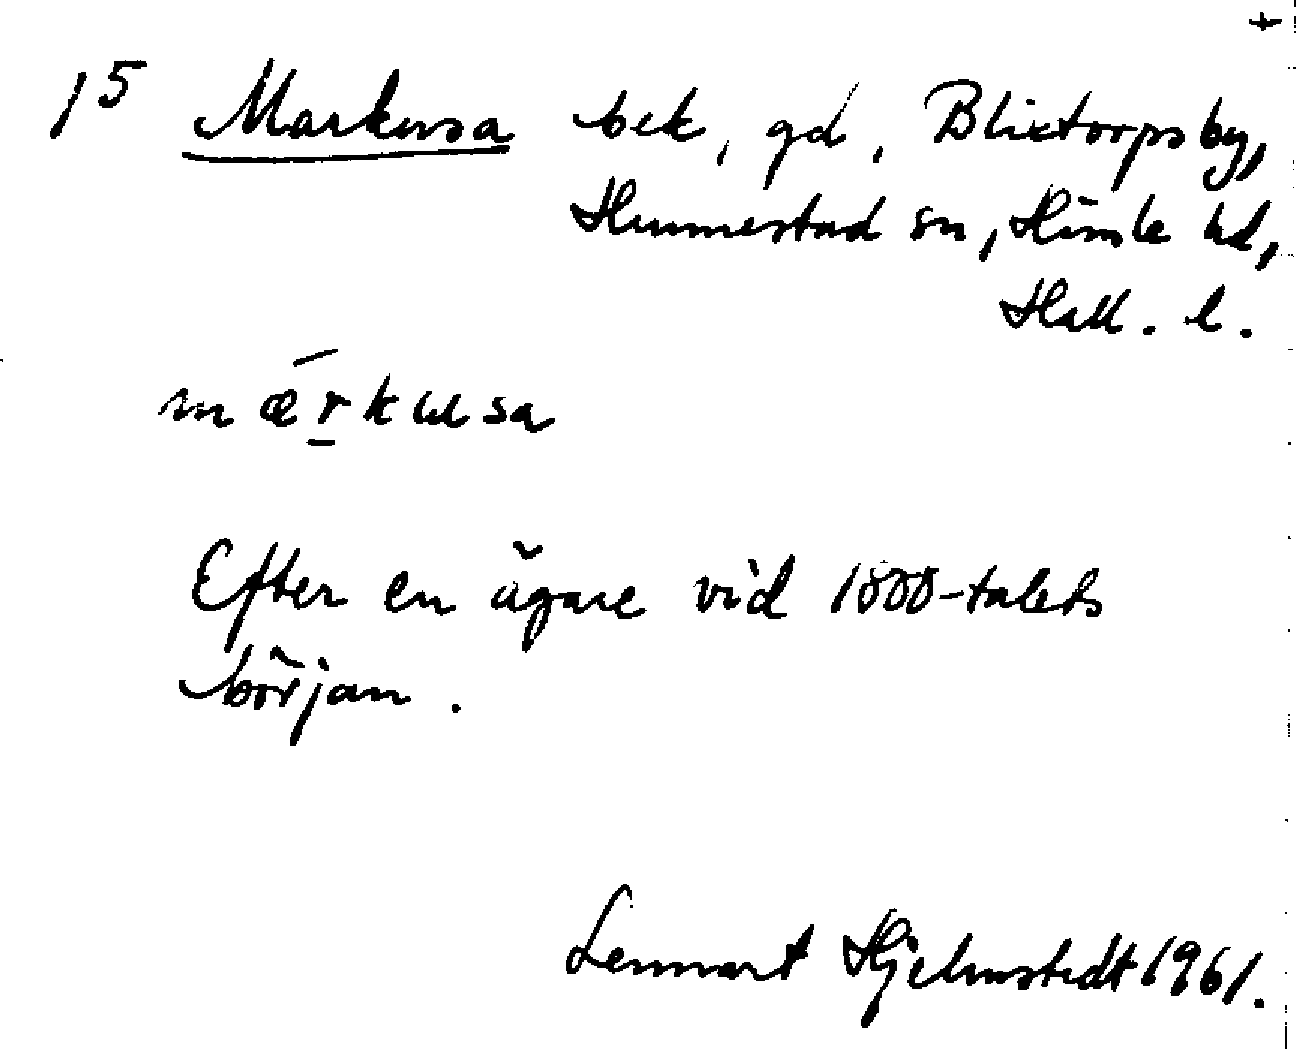 15 Markusa bek, gd, Blixtorps by,
Hunnestad sn, Himle hd,
Hall. l.
mǽr̲kusa
Efter en ägare vid 1800-talets
början.
Lennart Hjelmstedt 1961.